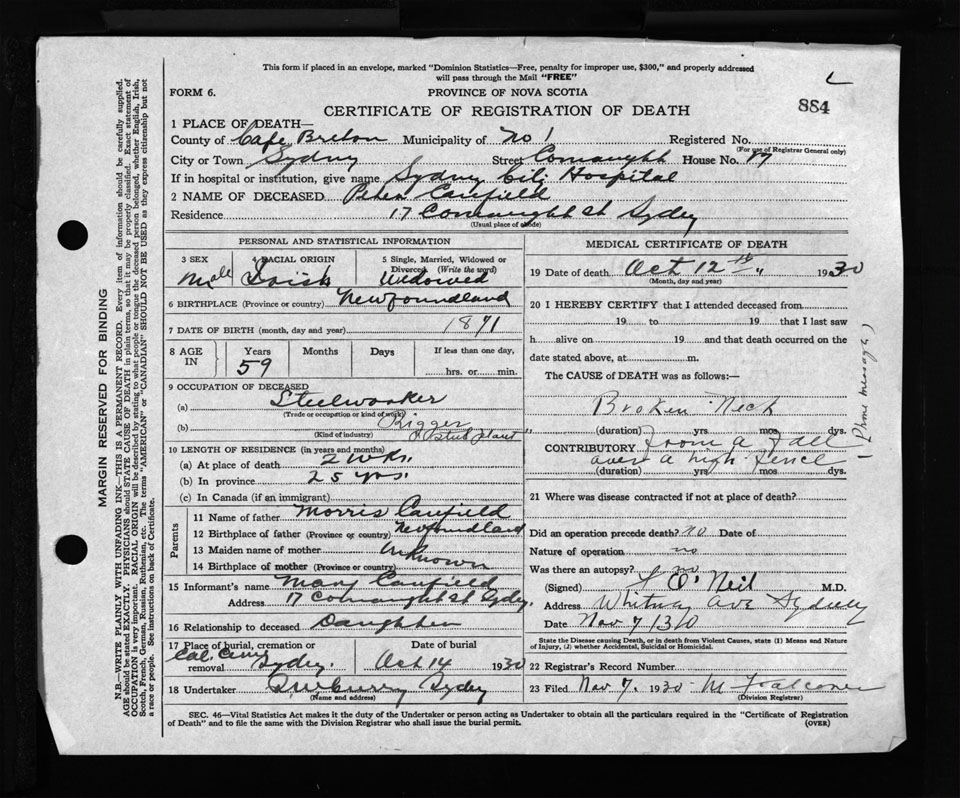 This form if placed in an envelope, marked "Dominion Statistics—Free, penalty for improper use, $300," and properly addressed
will pass through the Mail "FREE"
FORM 6.
PROVINCE OF NOVA SCOTIA
884
CERTIFICATE OF REGISTRATION OF DEATH
1 PLACE OF DEATH—
County of Cape Breton Municipality of No 1 Registered No.
(For use of Registrar General only)
City or Town Sydney Street Connaught House No. 17
If in hospital or institution, give name Sydney City Hospital
2 NAME OF DECEASED Peter Caufield
Residence 17 Connaught St Sydney
(Usual place of abode)
PERSONAL AND STATISTICAL INFORMATION
3 SEX 4 RACIAL ORIGIN 5 Single, Married, Widowed or
Divorced (Write the word)
Male Irish Widowed
6 BIRTHPLACE (Province or country) Newfoundland
7 DATE OF BIRTH (month, day and year) 1871
8 AGE IN Years Months Days If less than one day,
59 hrs. or min.
9 OCCUPATION OF DECEASED
(a) Steelworker
(Trade or occupation or kind of work)
(b) Rigger
(Kind of industry) Steel plant
10 LENGTH OF RESIDENCE (in years and months)
(a) At place of death 2 wks.
(b) In province 25 yrs.
(c) In Canada (if an immigrant)
Parents
11 Name of father Morris Caufield
12 Birthplace of father (Province or country) Newfoundland
13 Maiden name of mother Unknown
14 Birthplace of mother (Province or country)
15 Informant's name Mary Caufield
Address 17 Connaught St Sydney.
16 Relationship to deceased Daughter
17 Place of burial, cremation or removal Date of burial
Cal. Cem Sydney. Oct 14 1930
18 Undertaker Sydney
(Name and address)
MEDICAL CERTIFICATE OF DEATH
19 Date of death Oct 12th 1930
(Month, day and year)
20 I HEREBY CERTIFY that I attended deceased from
19 to 19 that I last saw
h alive on 19 and that death occurred on the
date stated above, at m.
The CAUSE of DEATH was as follows:—
Broken Neck
(duration) yrs. mos. dys.
CONTRIBUTORY from a fall
over a high fence
(duration) yrs. mos. dys.
(Phone message)
21 Where was disease contracted if not at place of death?
Did an operation precede death? no Date of
Nature of operation no
Was there an autopsy? no
(Signed) O'Neil M.D.
Address Whitney Ave Sydney
Date Nov 7/30
State the Disease causing Death, or in death from Violent Causes, state (1) Means and Nature
of Injury, (2) whether Accidental, Suicidal or Homicidal.
22 Registrar's Record Number
23 Filed Nov 7. 1930 M Falconer
(Division Registrar)
SEC. 46—Vital Statistics Act makes it the duty of the Undertaker or person acting as Undertaker to obtain all the particulars required in the "Certificate of Registration
of Death" and to file the same with the Division Registrar who shall issue the burial permit.
(OVER)
MARGIN RESERVED FOR BINDING
N.B.—WRITE PLAINLY WITH UNFADING INK—THIS IS A PERMANENT RECORD. Every item of information should be carefully supplied.
AGE should be stated EXACTLY. PHYSICIANS should STATE CAUSE OF DEATH in plain terms, so that it may be properly classified. Exact statement of
OCCUPATION is very important. RACIAL ORIGIN will be described by stating to what people or tongue the deceased person belonged, whether English, Irish,
Scotch, French, German, Russian, Ruthenian, etc. The terms "AMERICAN" or "CANADIAN" SHOULD NOT BE USED as they express citizenship but not
a race or people. See instructions on back of Certificate.